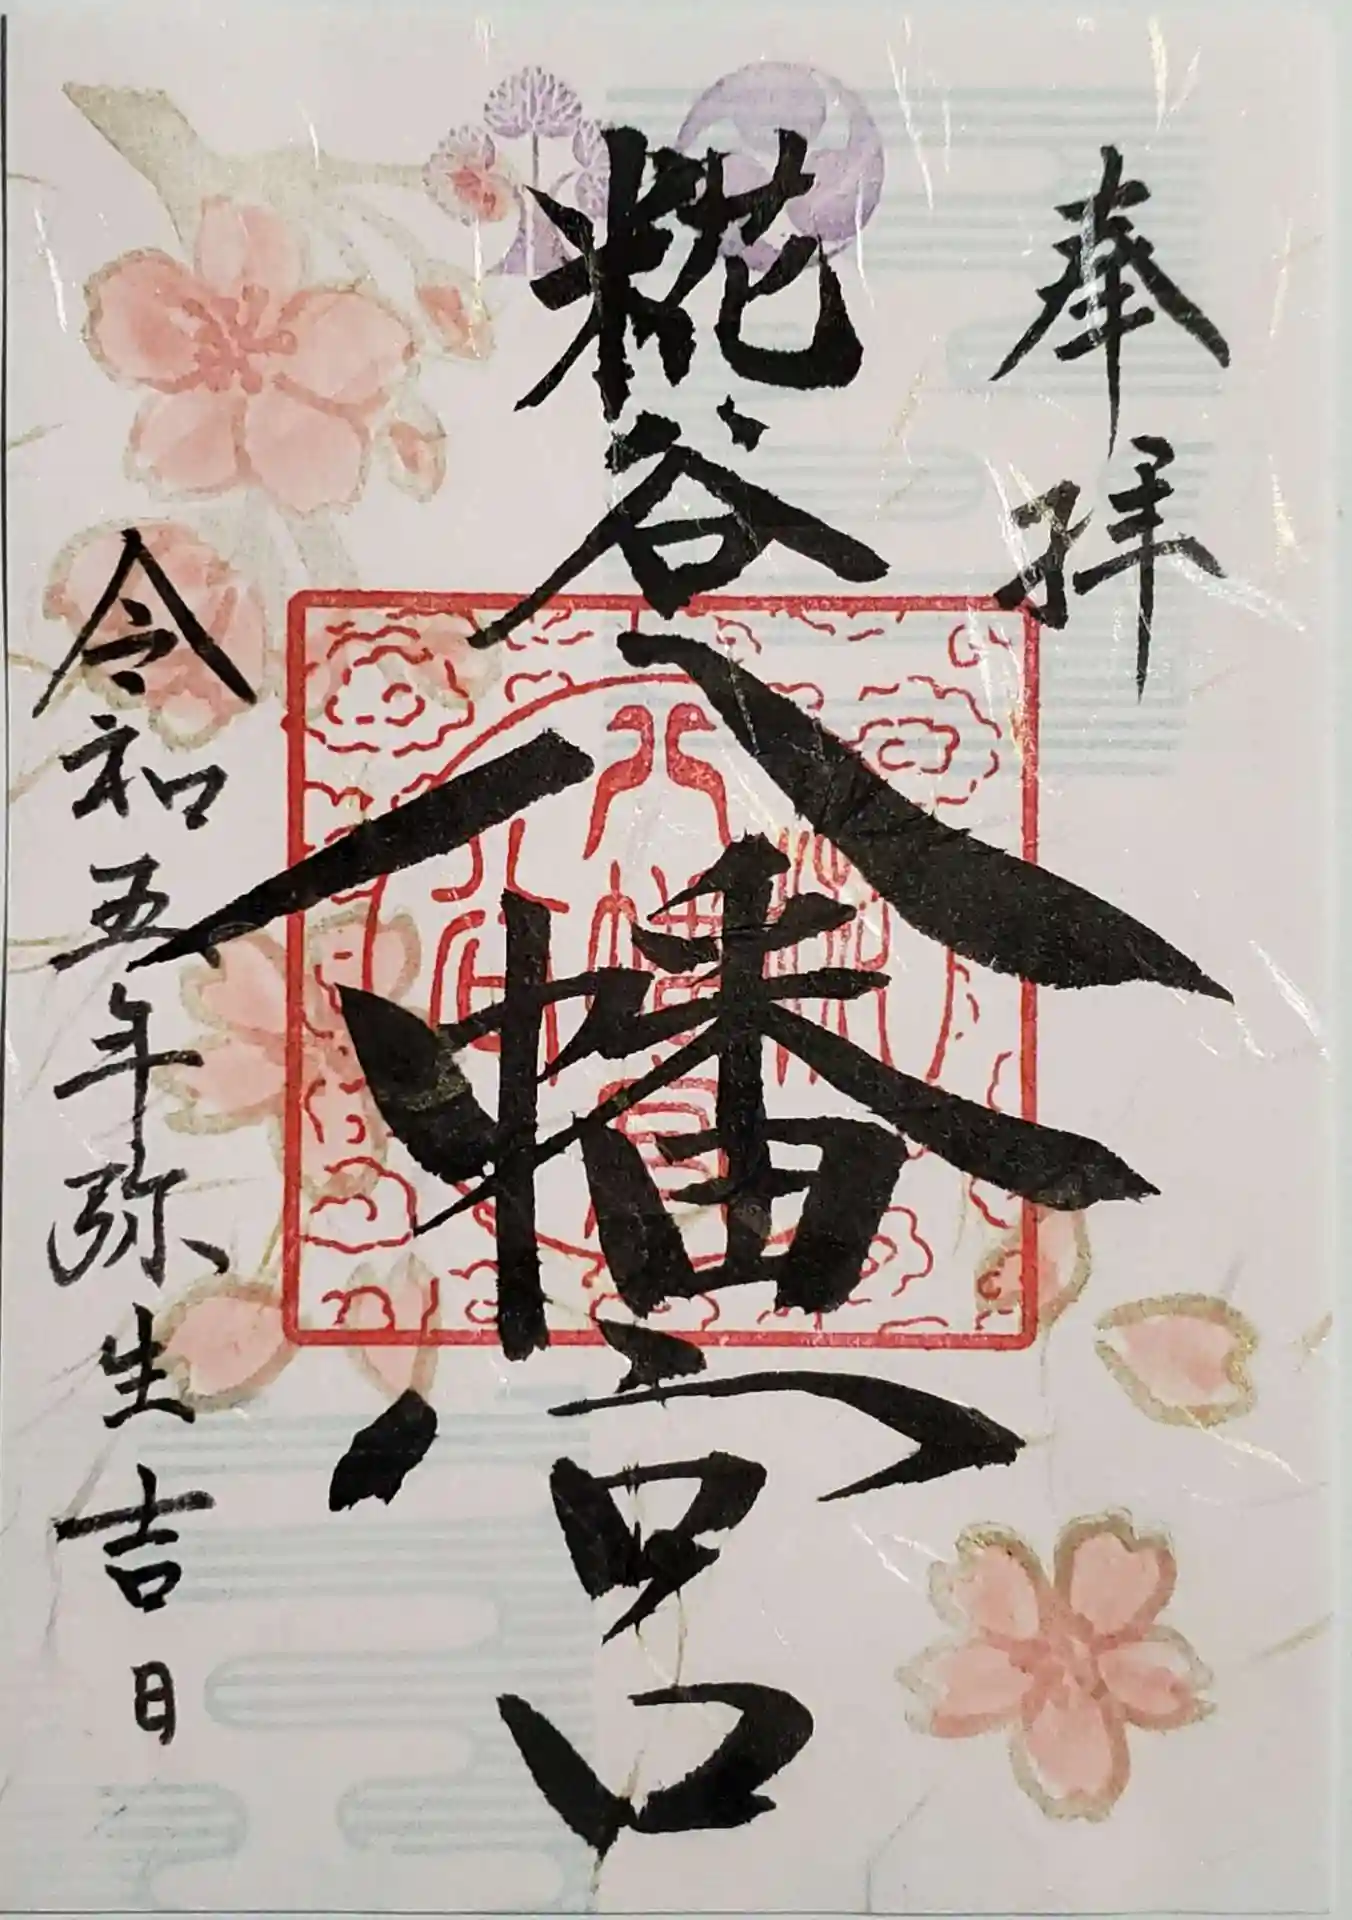 奉拝
糀谷八幡宮
令和五年弥生吉日